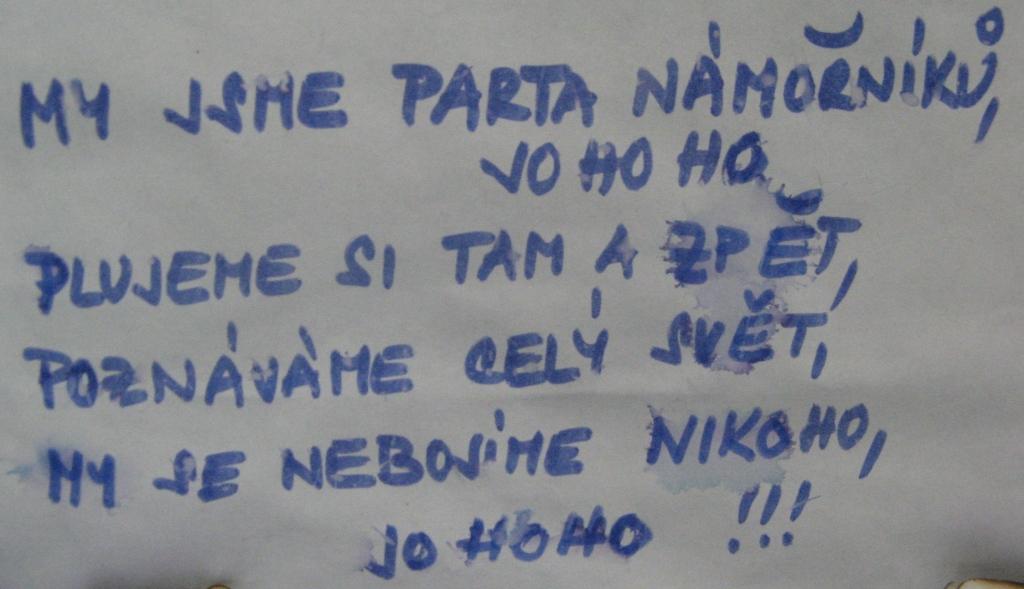 MY JSME PARTA NÁMOŘNÍKŮ,
JO HO HO
PLUJEME SI TAM A ZPĚT,
POZNÁVÁME CELÝ SVĚT,
MY SE NEBOJÍME NIKOHO,
JO HOHO !!!